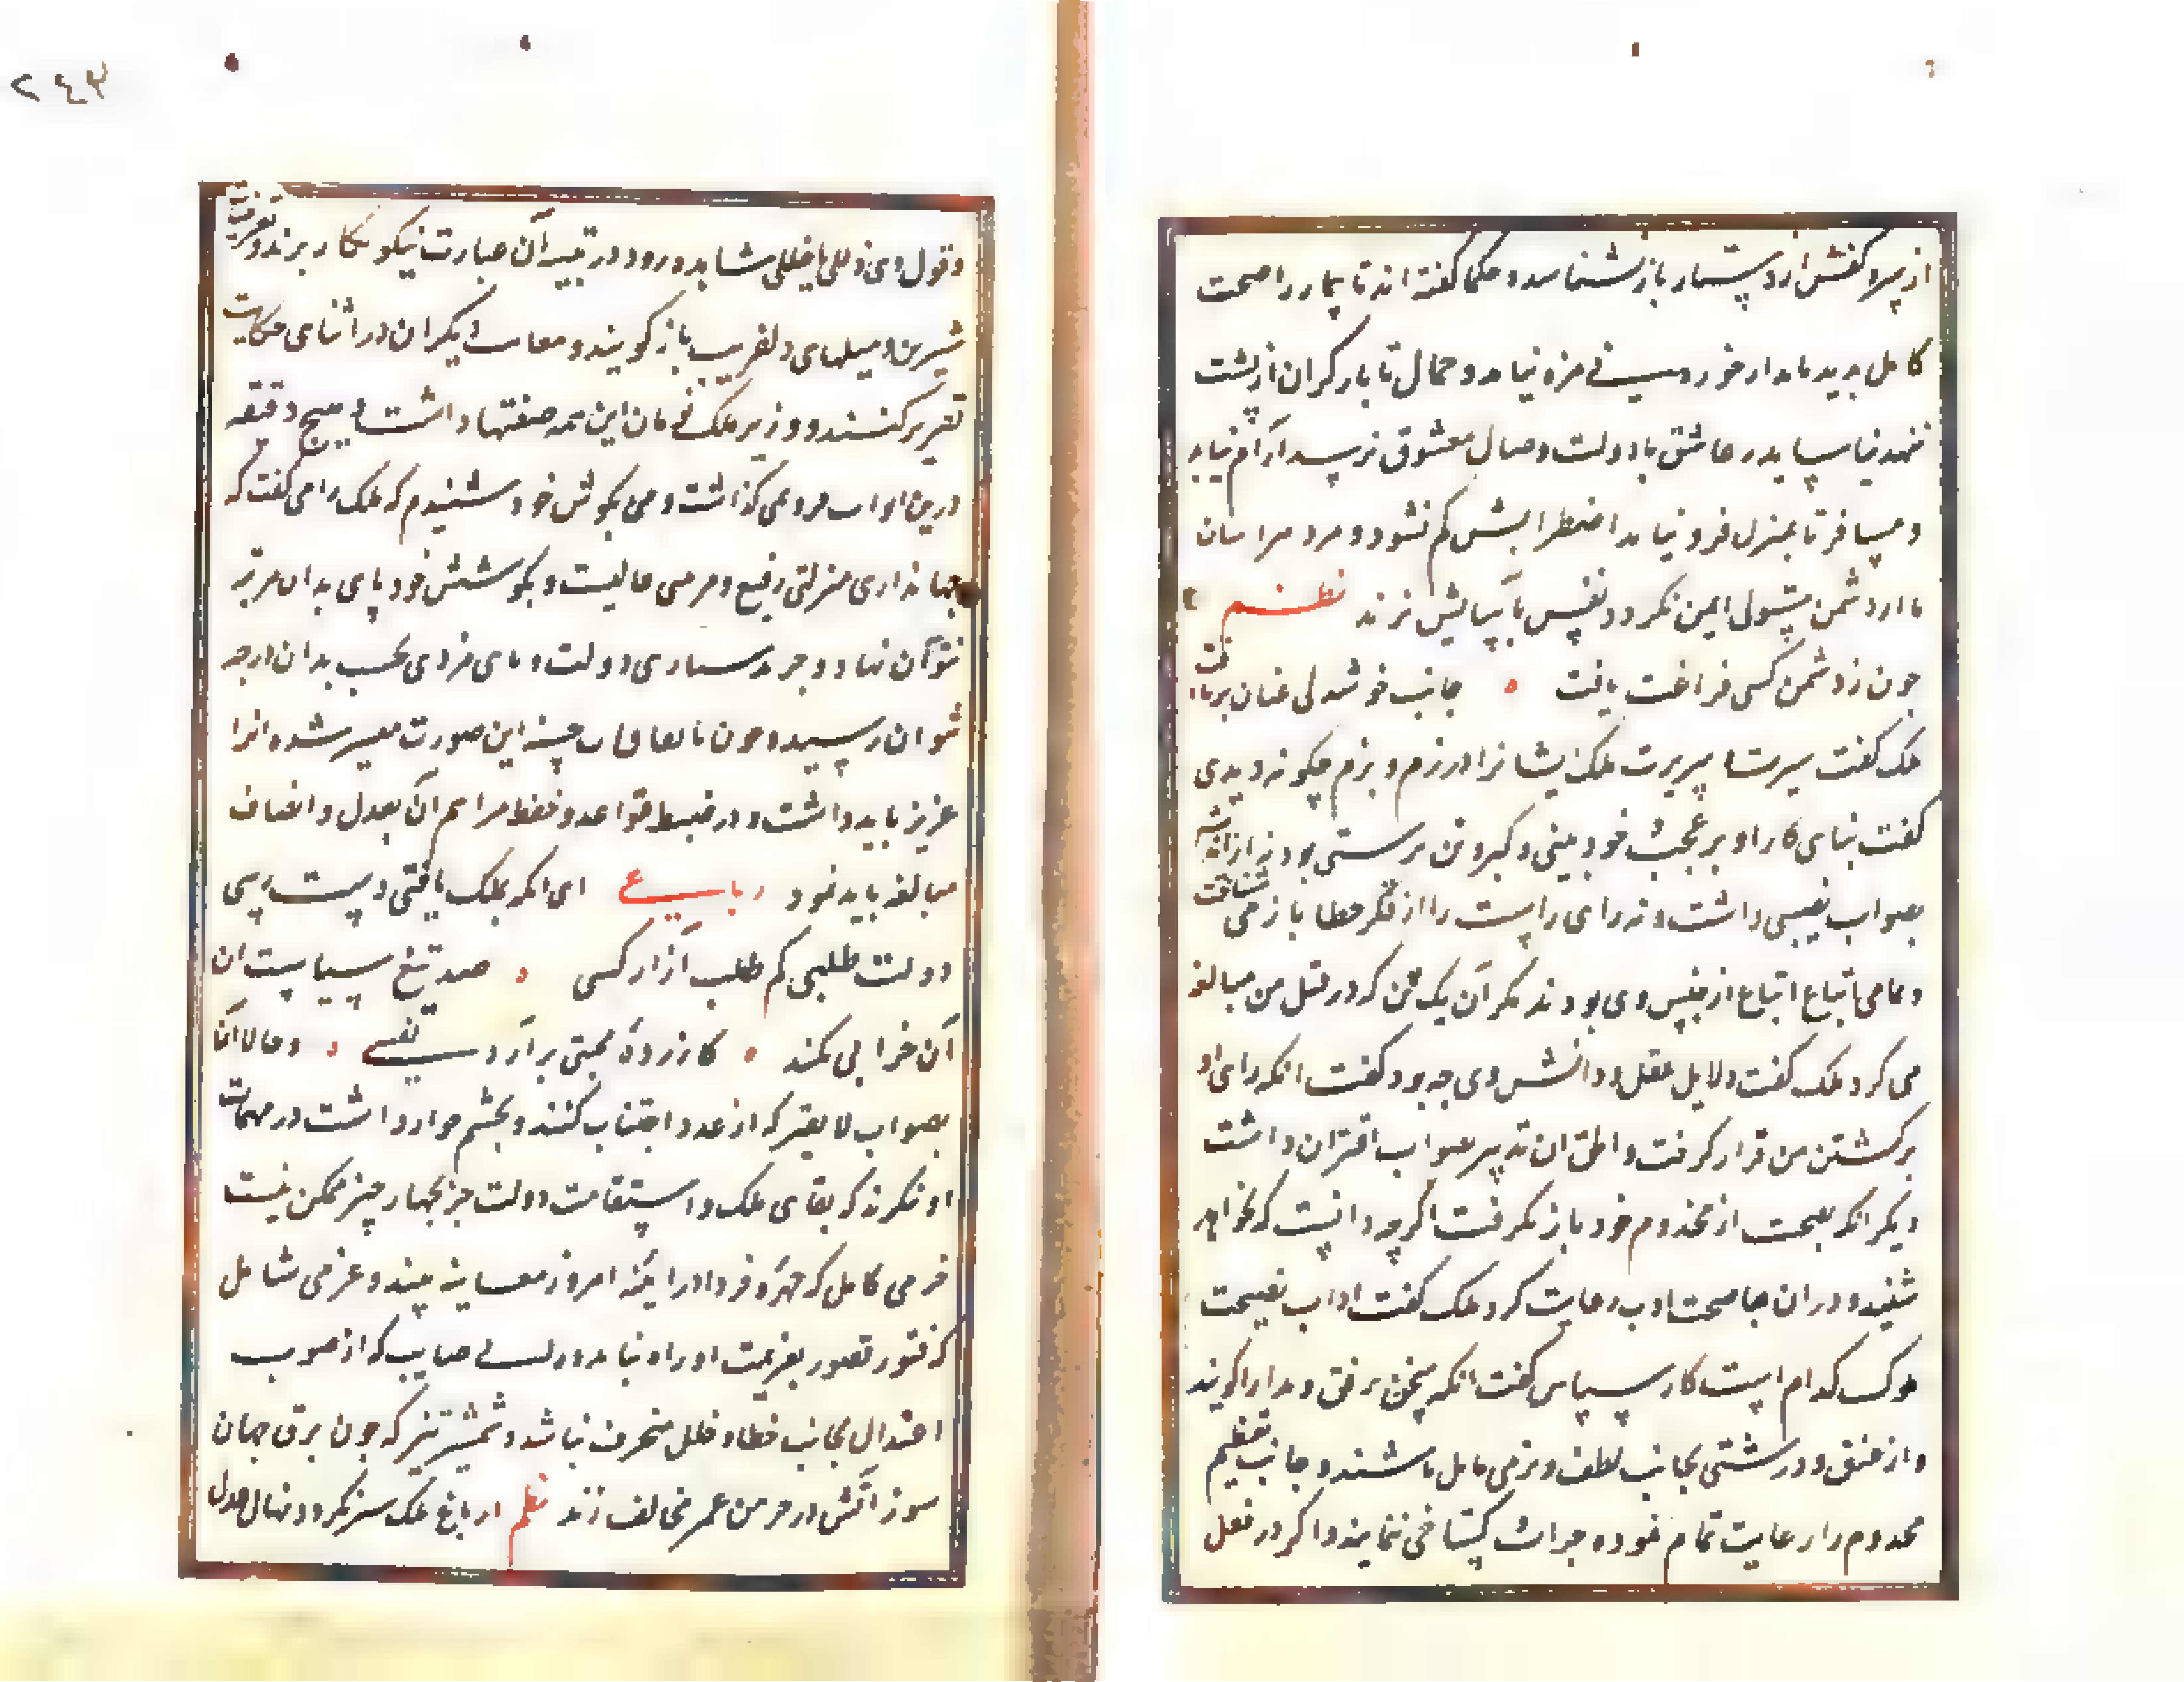 از سر و کفش از دستار باز نشناسد و حکما گفته اند تا بیمار را صحت
کامل بدید نیاید از خوردنی مزه نیابد و حمال تا بار کران از پشت
ننهد نیاساید و عاشق تا بدولت وصال معشوق نرسد آرام نیابد
و مسافر تا بمنزل فرو نیاید اضطرابش کم نشود و مرد هراسان
تا از دشمن مستولی ایمن نکردد نفس باسایش نزند نظم
چون ز دشمن کسی فراغت یافت جانب خوشدلی عنان برتافت
ملک کفت سیرت و سریرت ملک ایشانرا در رزم و بزم چکونه دیدی
کفت بنای کار او بر عجب و خودبینی و کبر و تن پرستی بود نه از اندیشه
بصواب نصیبی داشت و نه رای راست را از فکر خطا باز می شناخت
و تمامی اتباع از جنس وی بودند مکر آن یک تن که در قتل من مبالغه
می کرد ملک کفت دلایل عقل و دانش وی چه بود کفت انکه رای او
بر کشتن من قرار کرفت و الحق ان تدبیر بصواب اقتران داشت
دیکر انکه نصیحت از مخدوم خود باز نکرفت اکرچه دانست که نخواهد
شنید و دران نصیحت ادب رعایت کرد ملک کفت اداب نصیحت
ملوک کدام است کارشناس کفت انکه سخن برفق و مدارا کویند
و از عنف و درشتی بجانب لطف و نرمی مایل باشند و جانب تعظیم
مخدوم را رعایت تمام نموده جرات و کستاخی ننمایند و اکر در فعل
۲٤۳
و قول وی زللی یا خللی مشاهده رود در تنبیه آن عبارت نیکو بکار برند و تعریضات
شیرین و مثلهای دلفریب باز کویند و معایب دیکران در اثنای حکایت
تقریر کنند و وزیر ملک زمان این همه صفتها داشت و هیچ دقیقه
درین ابواب فرو نمی کذاشت و من بکوش خود شنیدم که ملک را می کفت که
جهانداری منزلتی رفیع و مرتبه عالیست و بکوشش خود پای بدان مرتبه
نتوان نهاد و جز بدستیاری دولت و پای مردی بخت بدان درجه
نتوان رسید و چون باتفاقات حسنه این صورت میسر شد انرا
عزیز باید داشت و در ضبط قواعد و حفظ مراسم ان بعدل و انصاف
مبالغه باید نمود رباعی ای انکه بملک یافتی دست رسی
دولت طلبی کم طلب آزار کسی صد تیغ سیاست ان
آن خرابی نکند کازرده بمحنتی برآرد نفسی و حالا آن
بصواب لایق تر که از عدو اجتناب کنند و بچشم خوار داشت در مهمات
او ننکرند که بقای ملک و استقامت دولت جز بچهار چیز ممکن نیست
حزمی کامل که چهره فردا در آینه امروز معاینه بیند و عزمی شامل
که فتور و قصور بعزیمت او راه نیابد و رای صایب که از صوب
اعتدال بجانب خطا و خلل منحرف نباشد و شمشیر تیز که چون برق جهان
سوز آتش در خرمن عمر مخالف زند نظم از باغ ملک سبز نکردد نهال عدل